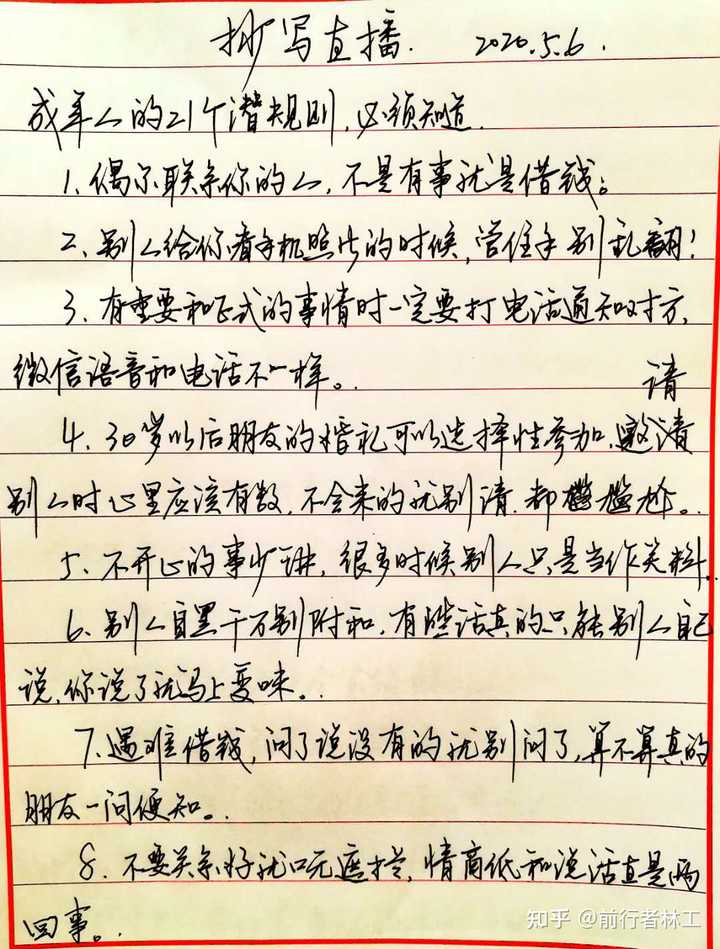 抄写直播. 2020.5.6.
成年人的21个潜规则,必须知道.
1、偶尔联系你的人,不是有事就是借钱。
2、别人给你看手机照片的时候,管住手别乱翻!
3、有重要和正式的事情时一定要打电话通知对方,
微信语音和电话不一样。
请
4、30岁以后朋友的婚礼可以选择性参加.邀请
别人时心里应该有数,不会来的就别请.都尴尬。
5、不开心的事少聊,很多时候别人只是当作笑料.
6、别人自黑千万别附和,有些话真的只能别人自己
说,你说了就马上变味。
7、遇难借钱,问了说没有的就别问了,算不算真的
朋友一问便知。
8、不要关系好就口无遮拦,情商低和说话直是两
回事。
知乎 @前行者林工